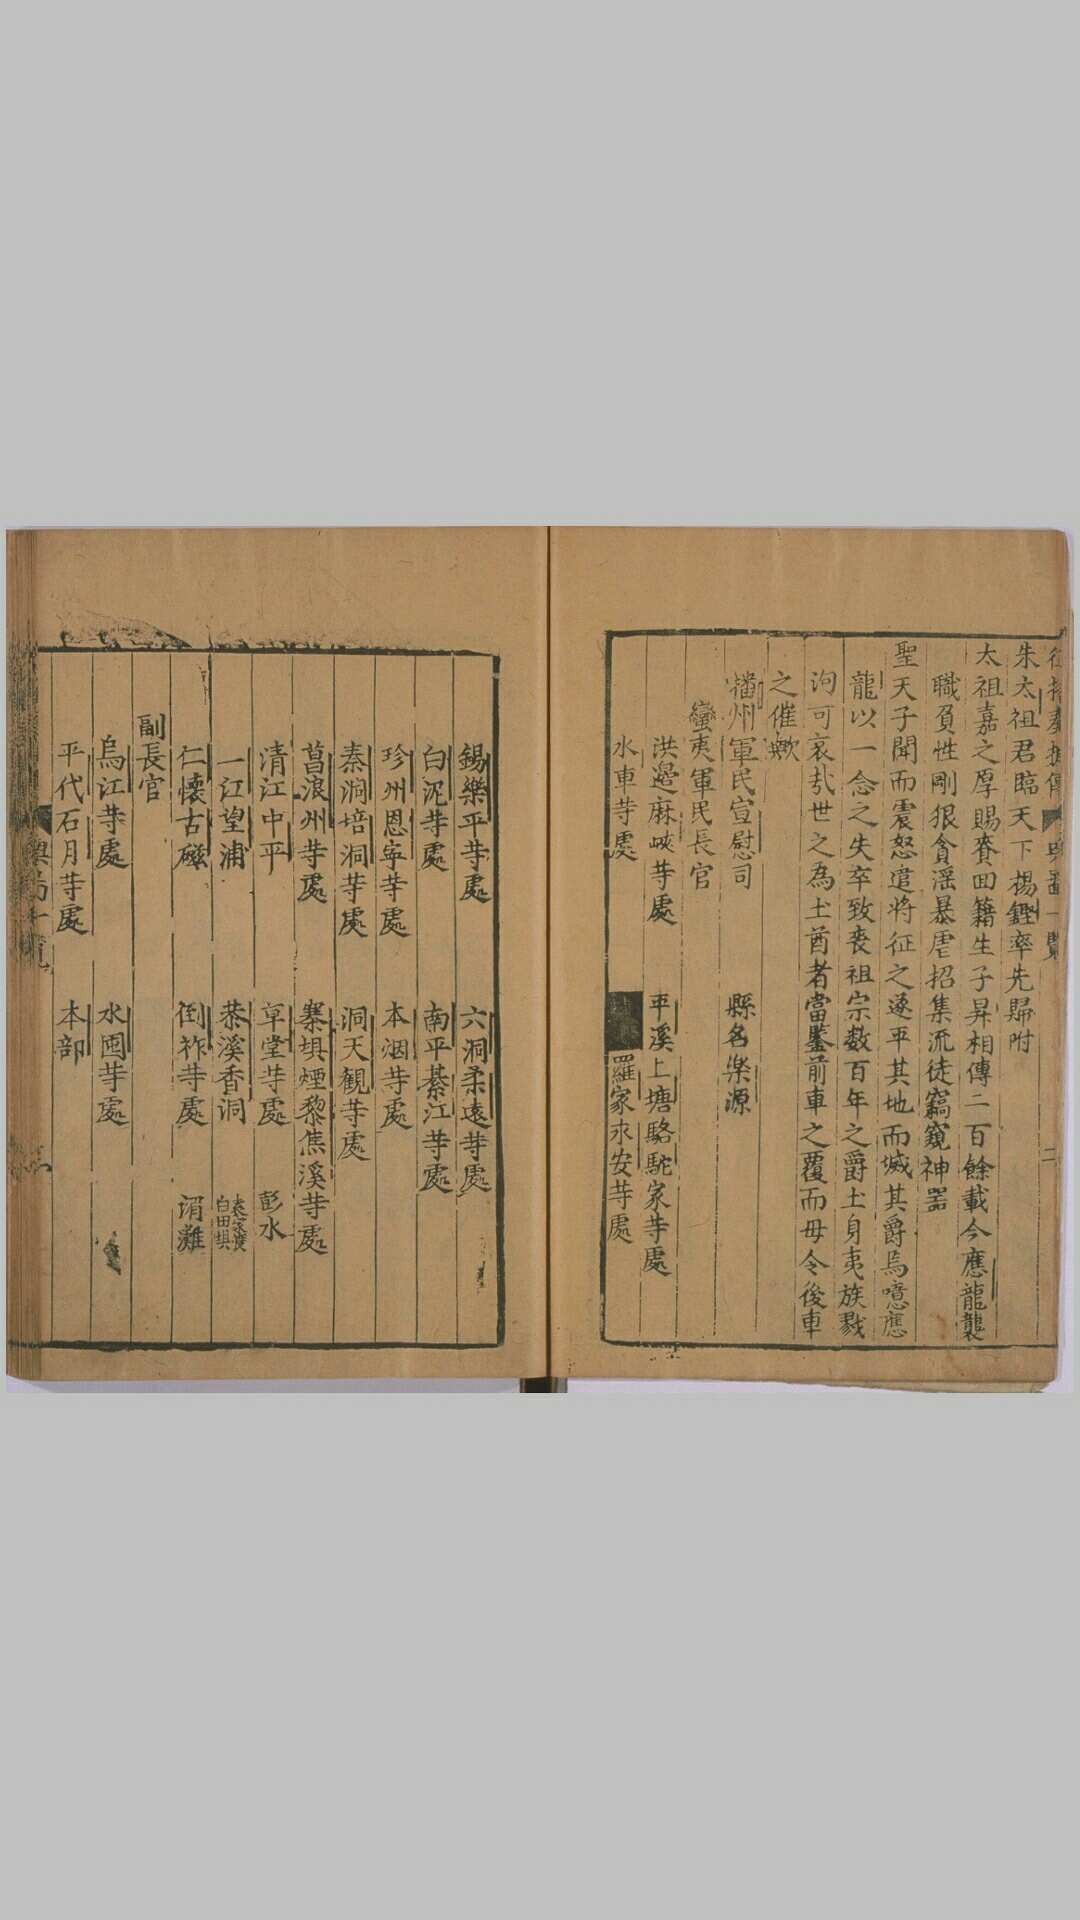 朱太祖君臨天下楊鏗率先歸附
太祖嘉之厚賜賚田籍生子昇相傳二百餘載今應龍襲
職負性剛狠貪滛暴虐招集流徒竊窺神噐
聖天子聞而震怒遣將征之遂平其地而㓕其爵烏噫應
龍以一念之失卒致䘮祖宗数百年之爵土身夷族戮
洵可哀㢤世之為土酋者當鑒前車之覆而毋令後車
之催歟
播州軍民宣慰司 縣名楽源
蠻夷軍民長官
洪邉麻峽䓁處 平溪上塘駱駝家䓁處
水車䓁處 羅家永安䓁處
錫樂平䓁處 六洞柔遠䓁處
白泥䓁處 南平綦江䓁處
珍州恩寧䓁處 本烟䓁處
秦洞培洞䓁處 洞天観䓁處
菖浪州䓁處 寨垻煙黎焦溪䓁處
清江中平 草堂䓁處 彭水
一江望浦 恭溪香洞 白田垻
仁懷古磁 倒祚䓁處 湄灘
副長官
烏江䓁處 水囤䓁處
平代石月䓁處 本部